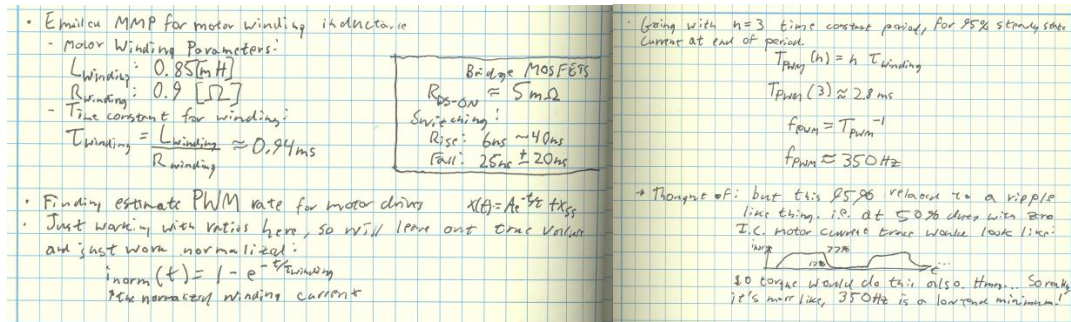 • Emailed MMP for motor winding inductance
- Motor Winding Parameters:
L winding : 0.85 [mH]
R winding : 0.9 [Ω]
- Time constant for winding:
τ winding = L winding / R winding ≈ 0.94 ms
Bridge MOSFETS
R DS-ON ≈ 5 mΩ
Switching:
Rise: 6ns ~40ns
Fall: 25ns ± 20ns
• Finding estimate PWM rate for motor drives x(t) = Ae^-t/τ + x_ss
• Just working with ratios here, so will leave out true values
and just work normalized:
i norm (t) = 1 - e^-t/τ winding
↑ the normalized winding current
· Going with n=3 time constant period, for 95% steady state
current at end of period.
T PWM (n) = n τ winding
T PWM (3) ≈ 2.8 ms
f PWM = T PWM ^-1
f PWM ≈ 350 Hz
→ Thought of: but this 95% related to a ripple
like thing. i.e. at 50% duty with zero
I.C. motor current trace would look like:
so torque would do this also. Hmm... So really
it's more like, 350Hz is a low end minimum!